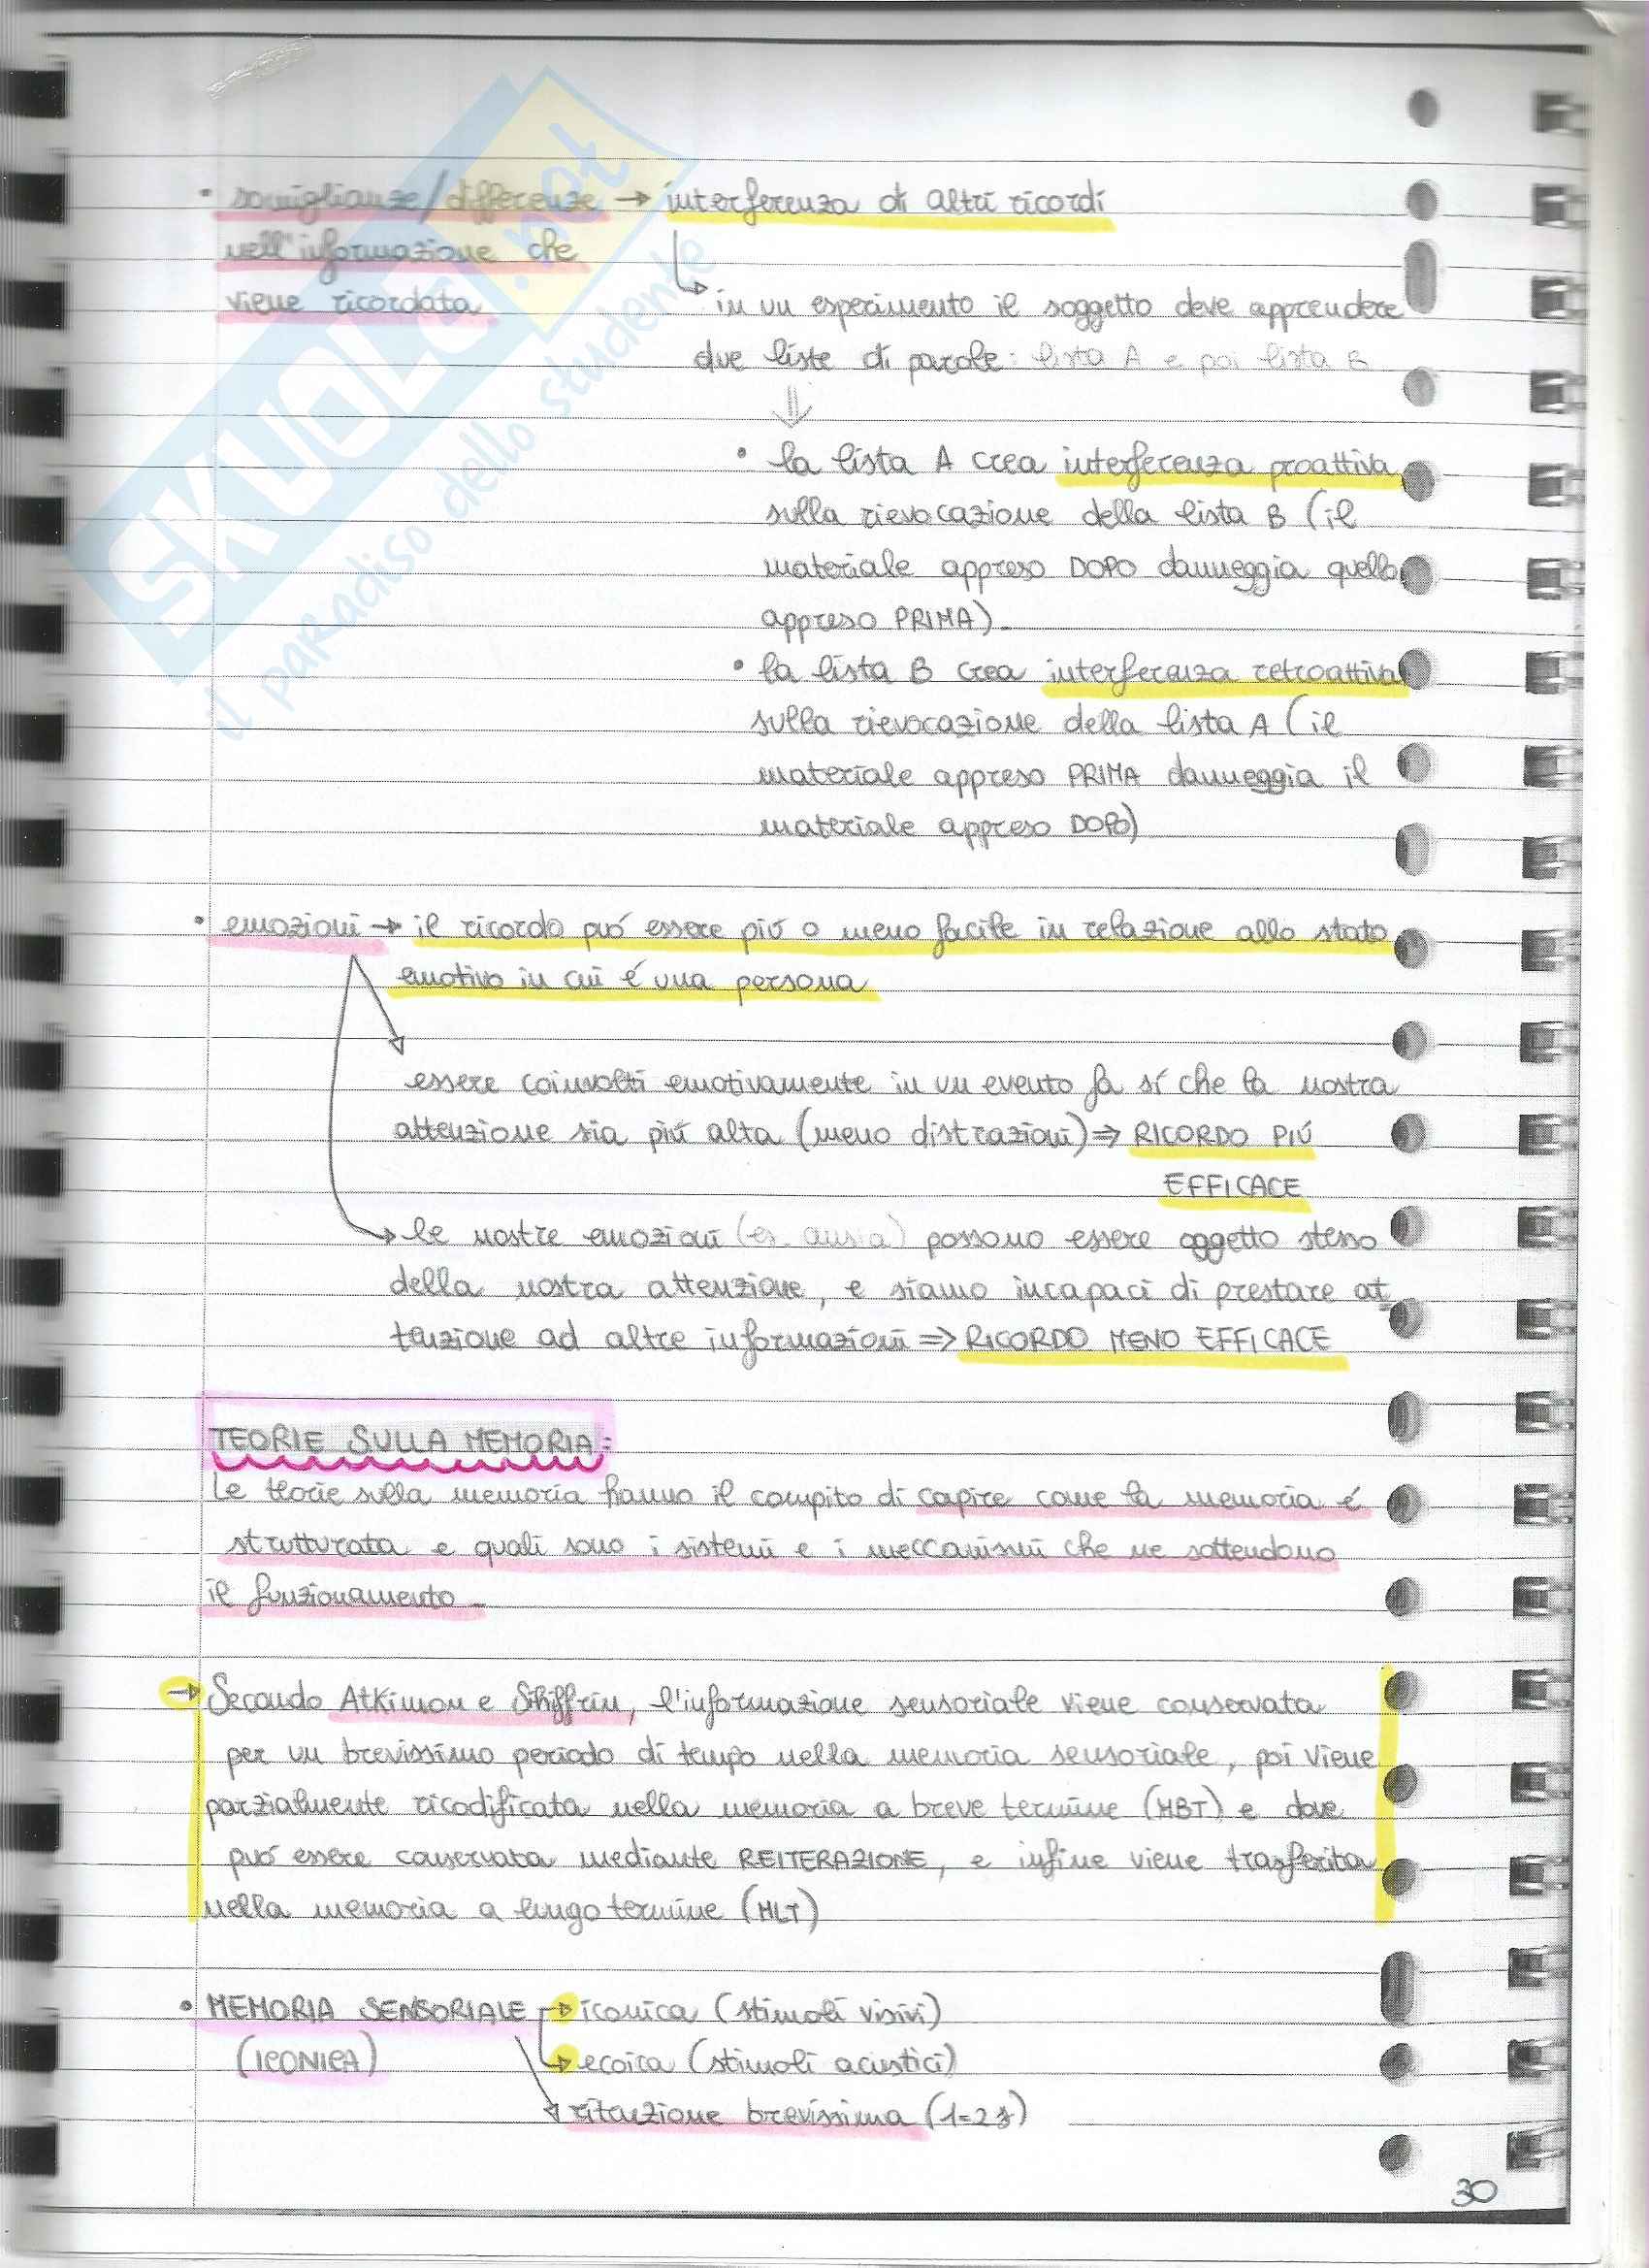 SKUOLA.net
il paradiso dello studente
• somiglianze/differenze → interferenza di altri ricordi
nell'informazione che
viene ricordata
in un esperimento il soggetto deve apprendere
due liste di parole: lista A e poi lista B
• la lista A crea interferenza proattiva
sulla rievocazione della lista B (il
materiale appreso DOPO danneggia quello
appreso PRIMA).
• la lista B crea interferenza retroattiva
sulla rievocazione della lista A (il
materiale appreso PRIMA danneggia il
materiale appreso DOPO)
• emozioni → il ricordo puó essere piú o meno facile in relazione allo stato
emotivo in cui é una persona
essere coinvolti emotivamente in un evento fa sí che la nostra
attenzione sia piú alta (meno distrazioni) ⇒ RICORDO PIÚ
EFFICACE
→ le nostre emozioni (es. ansia) possono essere oggetto stesso
della nostra attenzione, e siamo incapaci di prestare at
tenzione ad altre informazioni ⇒ RICORDO MENO EFFICACE
TEORIE SULLA MEMORIA:
Le teorie sulla memoria hanno il compito di capire come la memoria é
strutturata e quali sono i sistemi e i meccanismi che ne sottendono
il funzionamento.
→ Secondo Atkimon e Shiffrin, l'informazione sensoriale viene conservata
per un brevissimo periodo di tempo nella memoria sensoriale, poi viene
parzialmente ricodificata nella memoria a breve termine (MBT) e dove
puó essere conservata mediante REITERAZIONE, e infine viene trasferita
nella memoria a lungo termine (MLT)
• MEMORIA SENSORIALE → iconica (stimoli visivi)
(ICONICA) → ecoica (stimoli acustici)
→ ritenzione brevissima (1=2s)
30